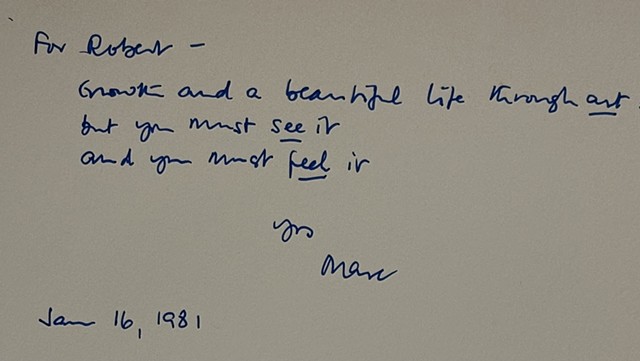 For Robert –
Growth and a beautiful life through art
but you must see it
and you must feel it
yrs
Marc
Jan 16, 1981